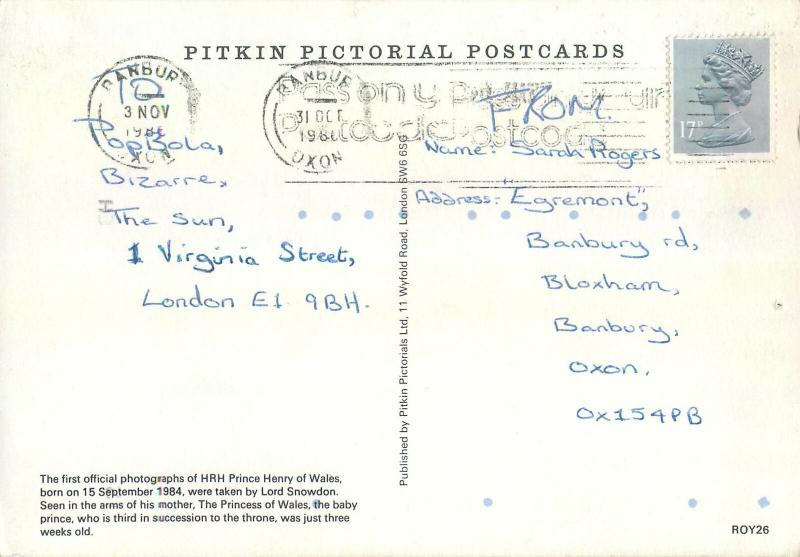 PITKIN PICTORIAL POSTCARDS
BANBURY
3 NOV
198
OXON
BANBURY
31 OCT
198
OXON
Pass on your
Postcode
17P
TO
PopBola,
Bizarre,
The Sun,
1 Virginia Street,
London E1 9BH.
FROM.
Name: Sarah Rogers
Address: "Egremont",
Banbury rd,
Bloxham,
Banbury,
Oxon,
Ox154PB
Published by Pitkin Pictorials Ltd, 11 Wyfold Road, London SW6 6SG
The first official photographs of HRH Prince Henry of Wales,
born on 15 September 1984, were taken by Lord Snowdon.
Seen in the arms of his mother, The Princess of Wales, the baby
prince, who is third in succession to the throne, was just three
weeks old.
ROY26